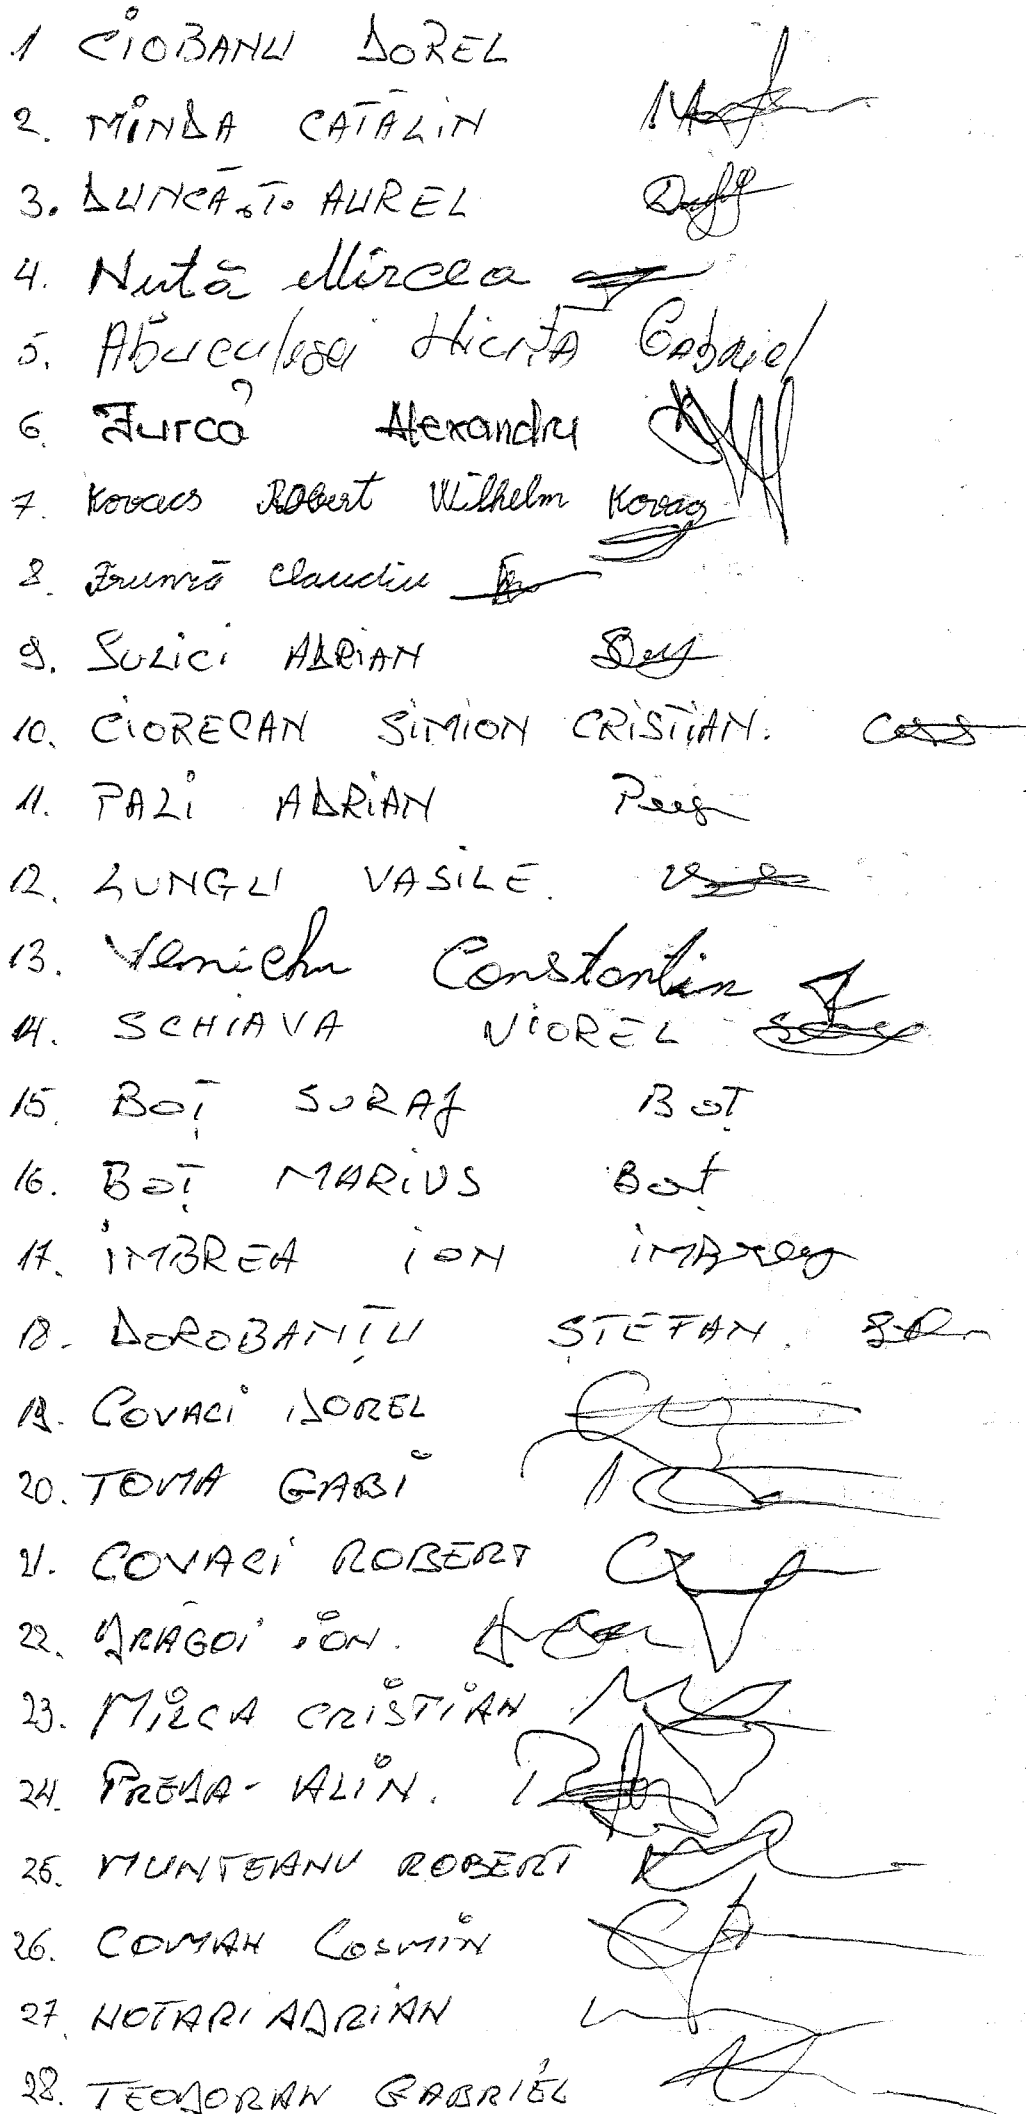 1 CIOBANU DOREL
2. MINDA CĂTĂLIN
3. DUNCA T. AUREL
4. Nută Mircea
5. Gabriel
6. Jurcă Alexandru
7. Kovacs Robert Wilhelm Kovacs
8. Frunză Claudiu
9. SULICI ADRIAN
10. CIORECAN SIMION CRISTIAN.
11. PALI ADRIAN
12. LUNGU VASILE.
13. Constantin
14. SCHIAVA VIOREL
15. BOȚ SURAJ BOȚ
16. BOȚ MARIUS Boț
17. IMBREA ION IMBrea
18. DOROBANȚU ȘTEFAN.
19. COVACI DOREL
20. TOMA GABI
21. COVACI ROBERT
22. DRĂGOI ION.
23. MIRCA CRISTIAN
24. PREDA-ALIN.
25. MUNTEANU ROBERT
26. COMAN COSMIN
27. NOTARI ADRIAN
28. TEODORAN GABRIEL